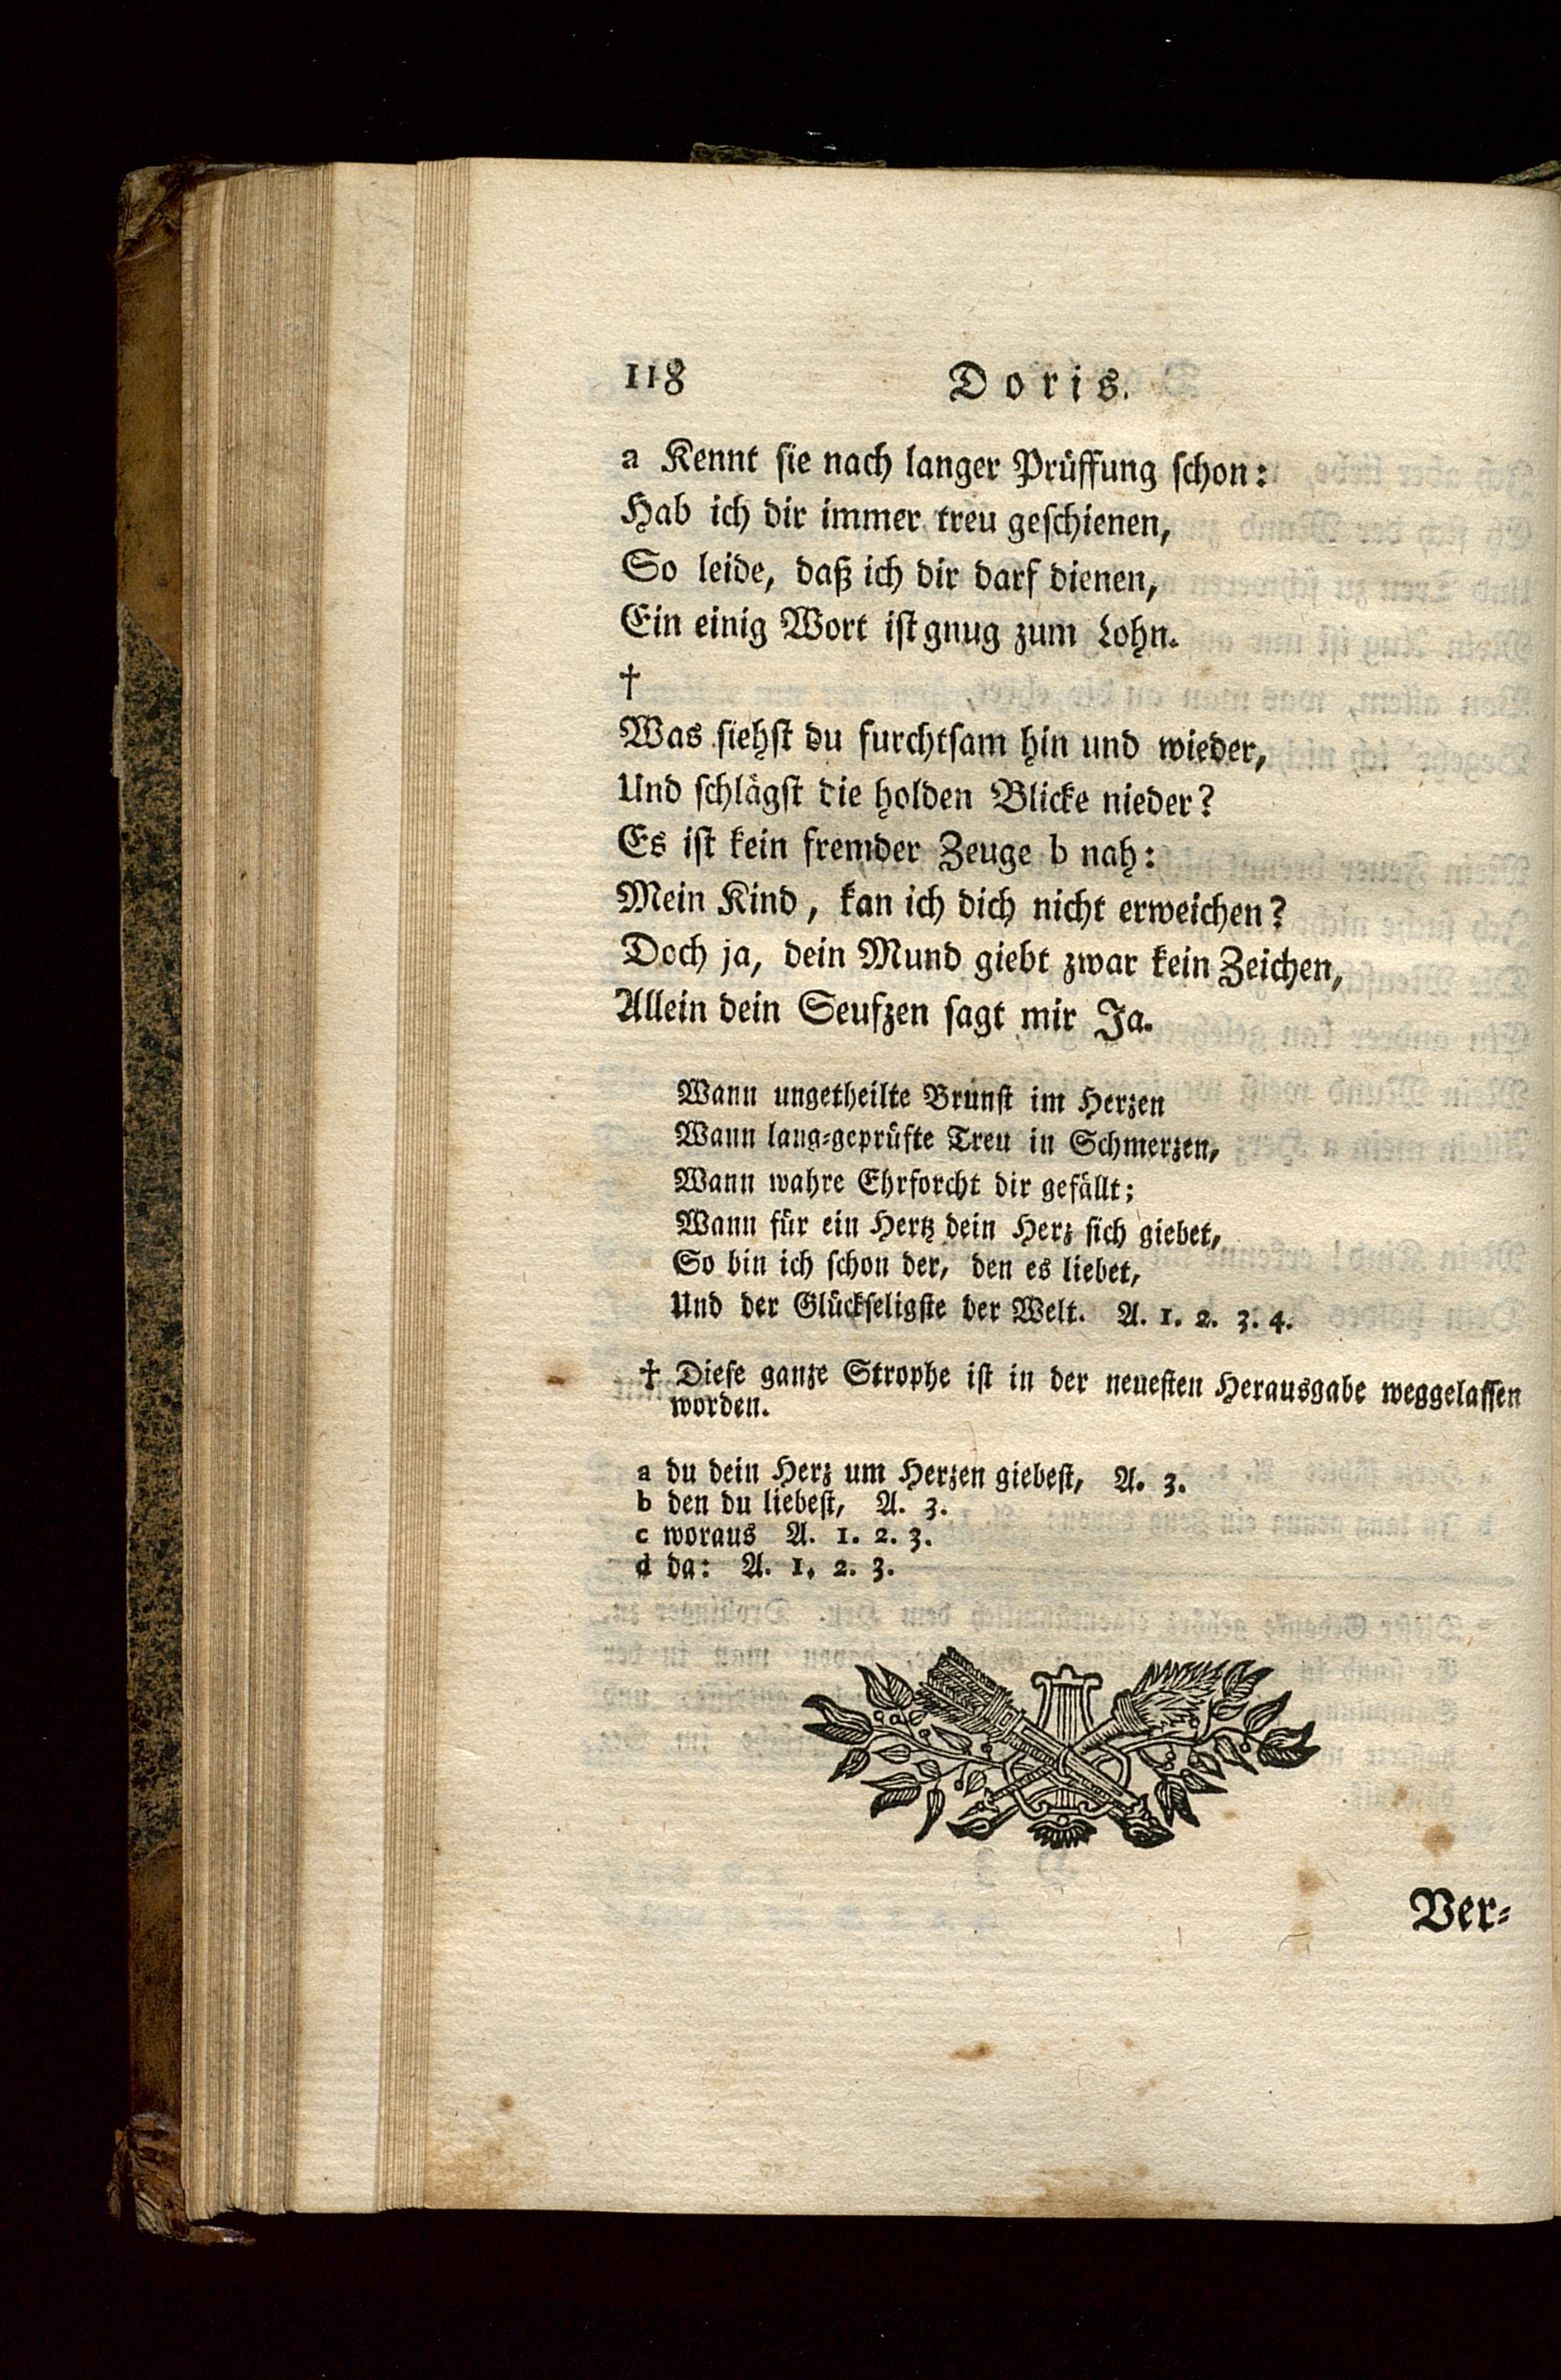 118 Doris.
a Kennt sie nach langer Prüffung schon:
Hab ich dir immer treu geschienen,
So leide, daß ich dir darf dienen,
Ein einig Wort ist gnug zum Lohn.
†
Was siehst du furchtsam hin und wieder,
Und schlägst die holden Blicke nieder?
Es ist kein fremder Zeuge b nah:
Mein Kind, kan ich dich nicht erweichen?
Doch ja, dein Mund giebt zwar kein Zeichen,
Allein dein Seufzen sagt mir Ja.
Wann ungetheilte Brunst im Herzen
Wann lang-geprüfte Treu in Schmerzen,
Wann wahre Ehrforcht dir gefällt;
Wann für ein Hertz dein Herz sich giebet,
So bin ich schon der, den es liebet,
Und der Glückseligste der Welt. A. 1. 2. 3. 4.
† Diese ganze Strophe ist in der neuesten Herausgabe weggelassen
worden.
a du dein Herz um Herzen giebest, A. 3.
b den du liebest, A. 3.
c woraus A. 1. 2. 3.
d da: A. 1. 2. 3.
Ver-